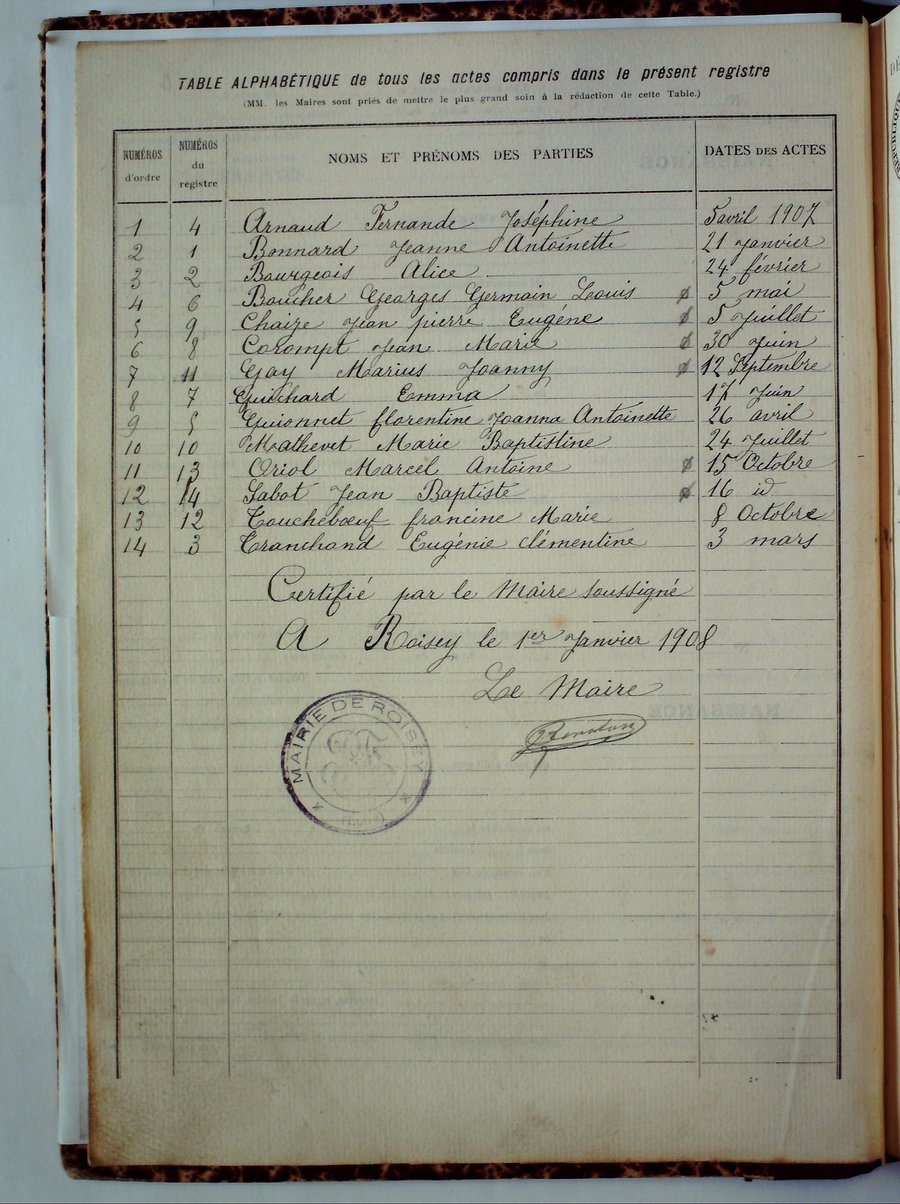 TABLE ALPHABÉTIQUE de tous les actes compris dans le présent registre
(MM. les Maires sont priés de mettre le plus grand soin à la rédaction de cette Table.)
NUMÉROS d'ordre NUMÉROS du registre NOMS ET PRÉNOMS DES PARTIES DATES DES ACTES
1 4 Arnaud Fernande Joséphine 5 avril 1907
2 1 Bonnard Jeanne Antoinette 21 Janvier
3 2 Bourgeois Alice 24 février
4 6 Boucher Georges Germain Louis ø 5 mai
5 9 Chaize Jean pierre Eugène ø 5 Juillet
6 8 Corompt Jean Marie ø 30 Juin
7 11 Gay Marius Joanny ø 12 Septembre
8 7 Guichard Emma 17 Juin
9 5 Guionnet florentine Joanna Antoinette 26 avril
10 10 Mathevet Marie Baptistine 24 Juillet
11 13 Oriol Marcel Antoine ø 15 Octobre
12 14 Sabot Jean Baptiste ø 16 id
13 12 Toucheboeuf francine Marie 8 Octobre
14 3 Tranchand Eugénie clémentine 3 mars
Certifié par le Maire soussigné
A Roisey le 1er Janvier 1908
Le Maire
MAIRIE DE ROISEY
(LOIRE)